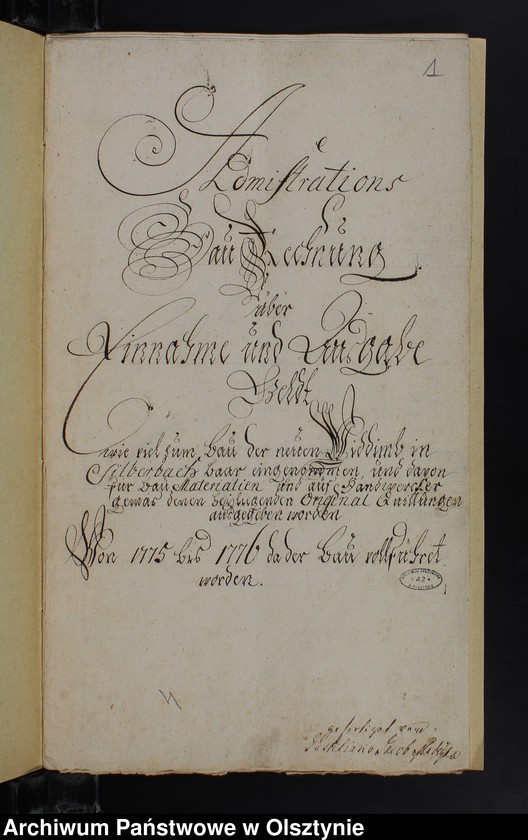 1
Admistrations
Bau Rechnung
über
Einnahme und Ausgabe
Geldt
wie viel zum Bau der neuen Widdimb in
Silberbach baar eingenommen, und davon
für Bau Materialien und auf Handwercker
gemäs denen beyliegenden Original Quittungen
ausgegeben worden
Von 1775 bis 1776 da der Bau vollführet
worden.
42
gefertiget von
Jacob
Archiwum Państwowe w Olsztynie